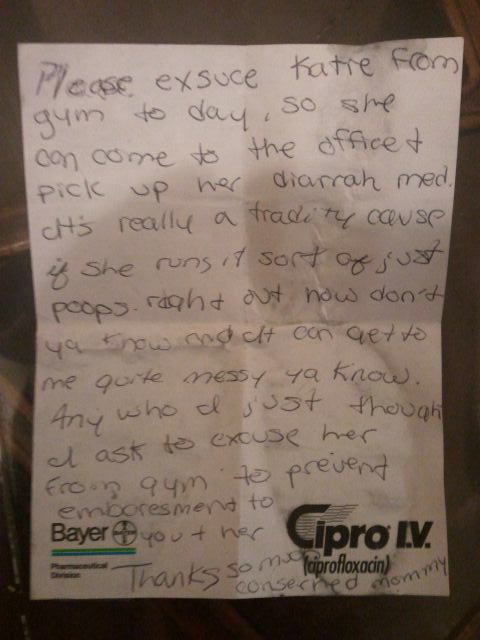 Please exsuce Katie from
gym to day, so she
can come to the office +
pick up her diarrah med.
It's really a tradity cause
if she runs it sort of just
poops right out now don't
ya know and It can get to
me quite messy ya know.
Any who I just though
I ask to excuse her
from gym to prevent
emboresment to
you + her
Thanks so much
conserned mommy
Bayer
BAYER
Pharmaceutical
Division
Cipro I.V.
(ciprofloxacin)